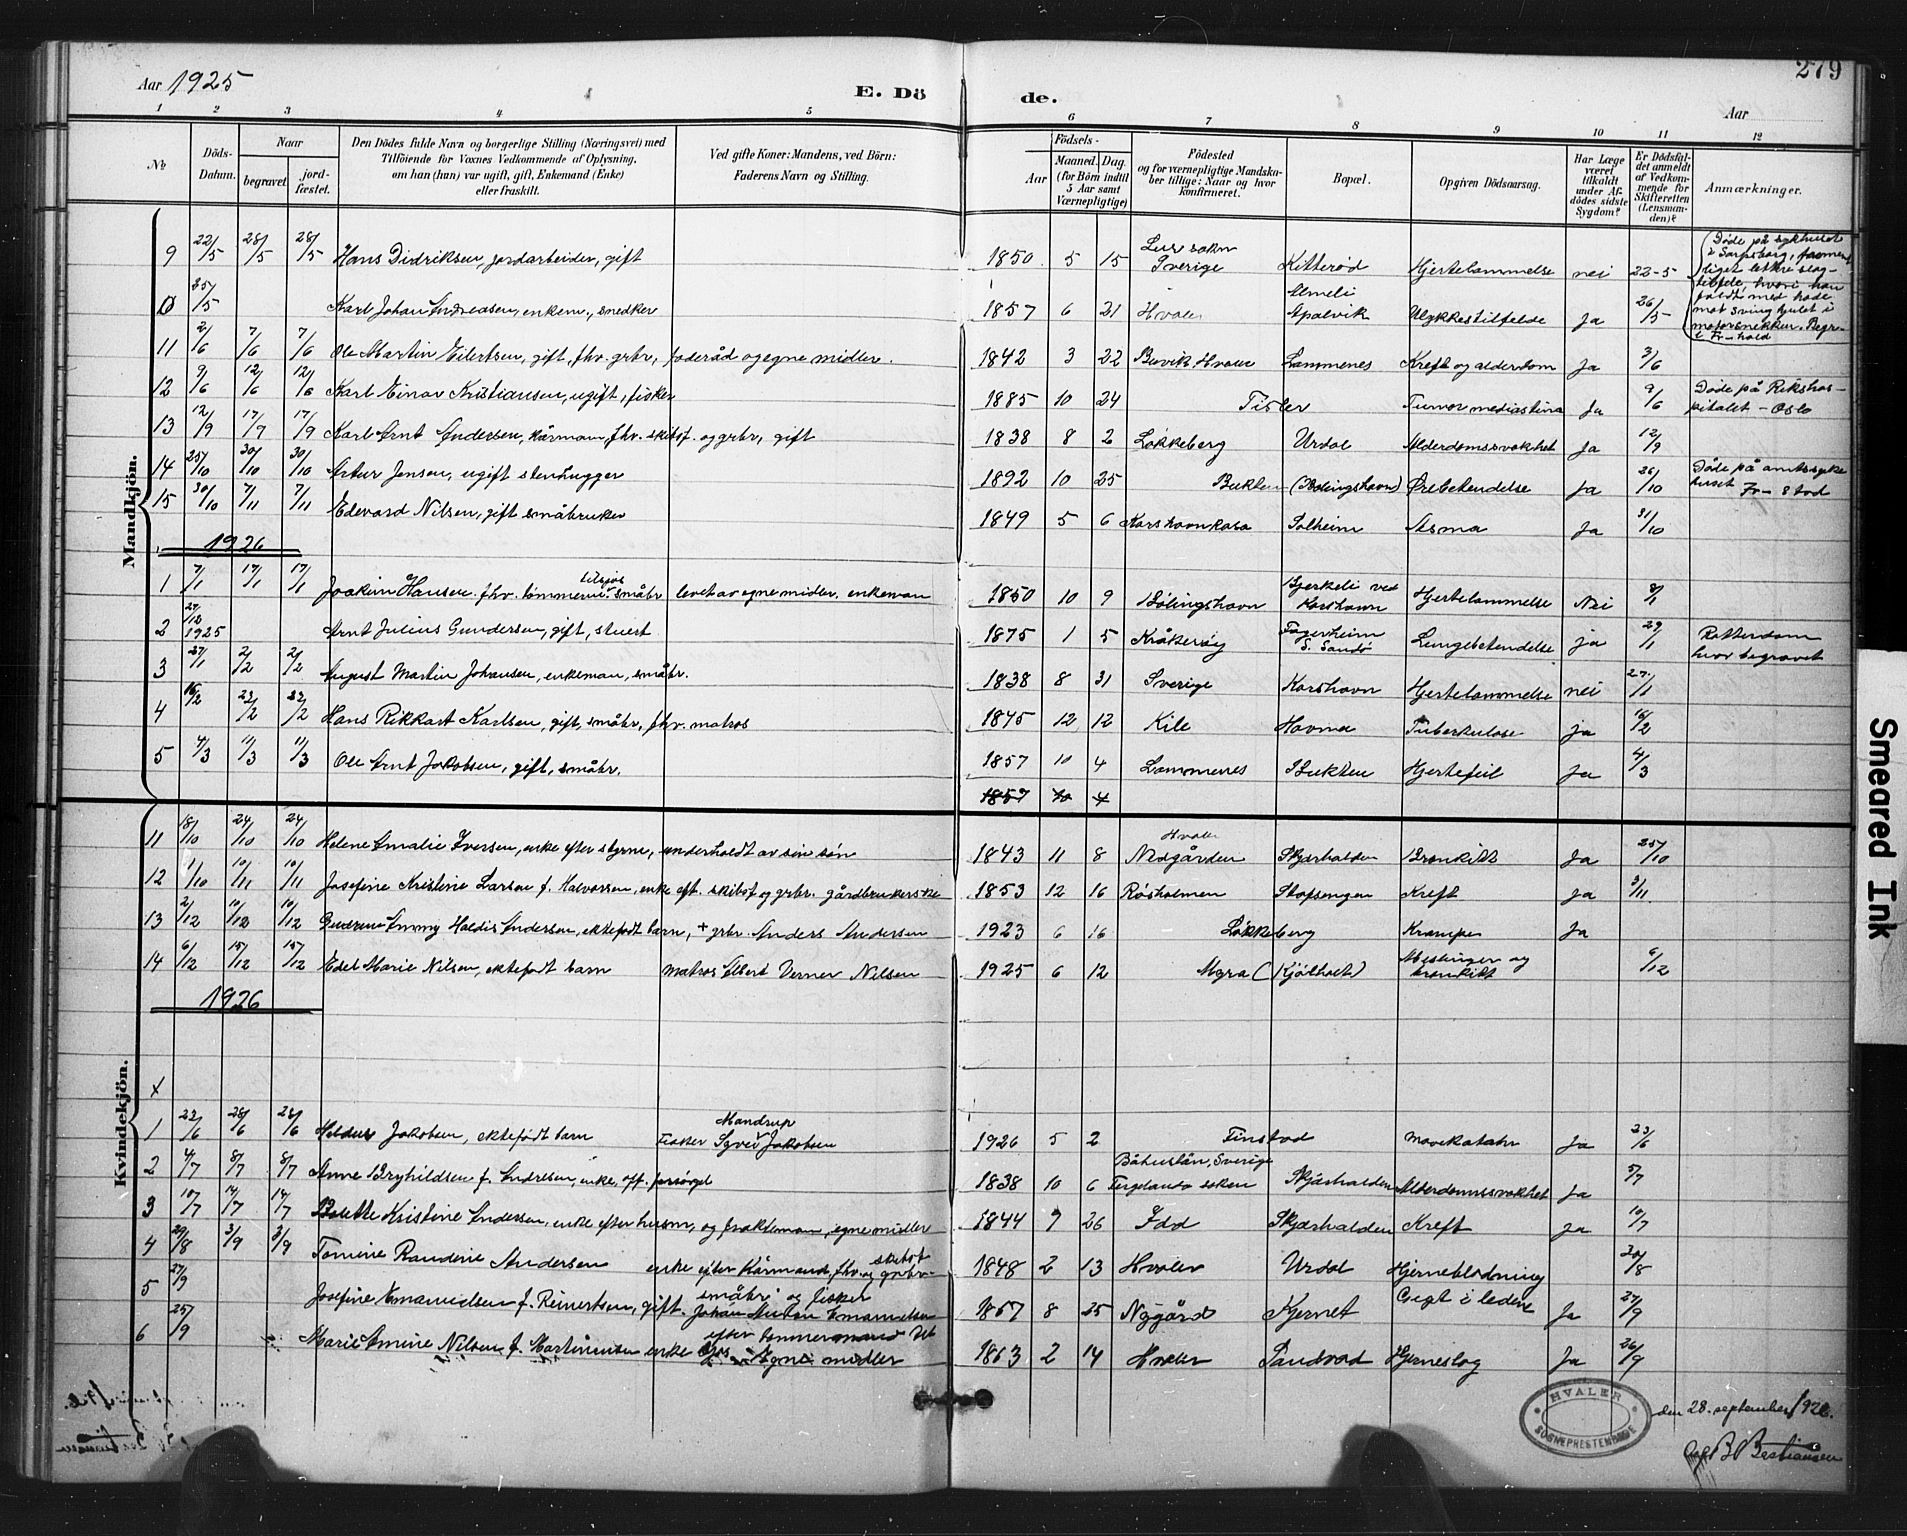 Aar 1925
E. Dö de.
279
Aar
1 2 3 4 5 6 7 8 9 10 11 12
No
Döds-Datum.
Naar
begravet
jord-fæstet.
Den Dödes fulde Navn og borgerlige Stilling (Næringsvei) med
Tilföiende for Voxnes Vedkommende af Oplysning,
om han (hun) var ugift, gift, Enkemand (Enke)
eller fraskilt.
Ved gifte Koner: Mandens, ved Börn:
Faderens Navn og Stilling.
Födsels-
Aar
Maaned. Dag.
(for Börn indtil
5 Aar samt
Værnepligtige)
Födested
og for værnepligtige Mandska-
ber tillige: Naar og hvor
konfirmeret.
Bopæl.
Opgiven Dödsaarsag.
Har Læge
været
tilkaldt
under Af-
dödes sidste
Sygdom?
Er Dödsfal-
det anmeldt
af Vedkom-
mende for
Skifteretten
(Lensman-
den)?
Anmærkninger.
Mandkjön.
9 22/5 28/5 28/5 Hans Didriksen, jordarbeider, gift 1850 5 15 Sverige Kitteröd Hjertelammelse nei 22-5
25/5 Karl Johan Andreasen, enkem., snedker 1857 6 21 Hvaler Apalvik Ulykkestilfelde Ja 26/5
11 2/6 7/6 7/6 Ole Martin Eilertsen, gift, fhv. grbr, foderåd og egne midler. 1842 3 22 Buvik Hvaler Lammenes Kreft og alderdom Ja 3/6
12 9/6 12/6 12/6 Karl Einar Kristiansen, ugift, fisker 1885 10 24 Tisler Tumor mediastina Ja 9/6 Döde på Rikshos-
pitalet - Oslo
13 12/9 17/9 17/9 Karl Arnt Andersen, kårmann, fhv. skibsf. og grbr, gift 1838 8 2 Lökkeberg Urdal Alderdomssvakhet Ja 12/9
14 25/10 30/10 30/10 Artur Jensen, ugift stenhugger 1892 10 25 Bukten (Bölingshavn) Ørebetendelse Ja 26/10 Döde på amtssyke
huset Fr-stad
15 30/10 7/11 7/11 Edevard Nilsen, gift småbruker 1849 5 6 Korshavn Solheim Asma Ja 31/10
1926
1 7/1 17/1 17/1 Joakim Hansen fhv. tömmerm. tilsjös småbr levet av egne midler, enkeman 1850 10 9 Bölingshavn Bjerkeli ved
Korshavn Hjertelammelse Nei 8/1
2 27/12 1925 Arnt Julius Gundersen, gift, stuert 1875 1 5 Kråkeröy Fagerheim
S. Sandö Lungebetendelse ja 29/1 Rotterdam
hvor begravet
3 27/1 2/2 2/2 August Martin Johansen, enkeman, småbr. 1838 8 31 Sverige Korshavn Hjertelammelse nei 27/1
4 16/2 23/2 23/2 Hans Rikkart Karlsen, gift, småbr, fhv. matros 1845 12 12 Kile Havna Tuberkulose ja 16/2
5 4/3 11/3 11/3 Ole Arnt Jakobsen, gift, småbr. 1857 10 4 Lammenes Bukten Hjertefeil Ja 4/3
1857 10 4
Kvindekjön.
11 18/10 24/10 24/10 Helene Amalie Iversen, enke efter styrm., underholdt av sin sön 1843 11 8 Hvaler
Nedgården Skjærhalden Bronkitt Ja 25/10
12 1/10 10/11 10/11 Josefine Kristine Larsen f. Halvorsen, enke eft. skibsf og grbr. gårdbrukerske 1853 12 16 Röshol​men Stafsengen Kreft Ja 3/11
13 2/12 10/12 10/12 Emmy Haldis Andersen, ektefödt barn, + grbr. Anders Andersen 1923 6 16 Lökkeberg Krampe Ja
14 6/12 15/12 15/12 Edel Marie Nilsen, ektefödt barn matros Albert Verner Nilsen 1925 6 12 Myra (Kjölholt) Meslinger og
bronkitt 6/12
1926
x
1 22/6 28/6 28/6 Jakobsen, ektefödt barn Fisker Mandrup Jakobsen 1926 5 2 Finstad Mavekatahr Ja 23/6
2 4/7 8/7 8/7 Anne Bryhildsen f. Andresen, enke, off. forsörget 1838 10 6 Båhuslän, Sverige Skjærhalden Alderdomssvakhet Ja 5/7
3 10/7 14/7 14/7 Bolette Kristine Andersen, enke efter husm, og fraktemann, egne midler 1844 9 26 Idd Skjærhalden Kreft ja 10/7
4 29/8 3/9 3/9 Tomine Randine Andersen enke efter kårmand, fhv. skibsf. og grbr. 1848 2 13 Hvaler Urdal Hjerneblödning 30/8
5 27/9 Josefine Emanuelsen f. Reinertsen, gift. småbr og fisker
Johan Anton Emanuelsen 1867 8 25 Nygård Kjernet Gigt i ledene Ja 27/9
6 25/9 Marie Amine Nilsen f. Martinsen enke efter tömmermand
Egne midler 1863 2 14 Hvaler Sandvad Hjerneslag Ja 26/9
HVALER
SOGNEPRESTEMBEDE
den 28. september 1926.
Bastiansen
Smeared Ink